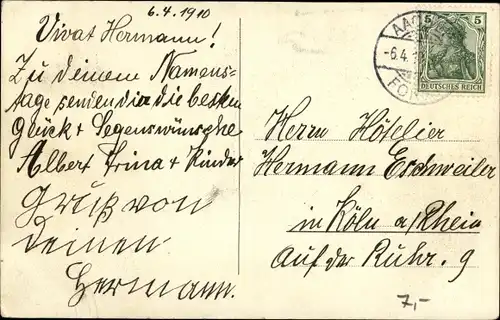 6.4.1910
Vivat Hermann!
Zu deinem Namens-
tage senden dir die besten
Glück + Segenswünsche
Albert Trina + Kinder
Gruß von
Deinen
Hermann.
5 5
DEUTSCHES REICH
AACHEN
-6.4.
Herrn Hôtelier
Hermann Eschweiler
in Köln a/Rhein
Auf der Ruhr. 9
7,-